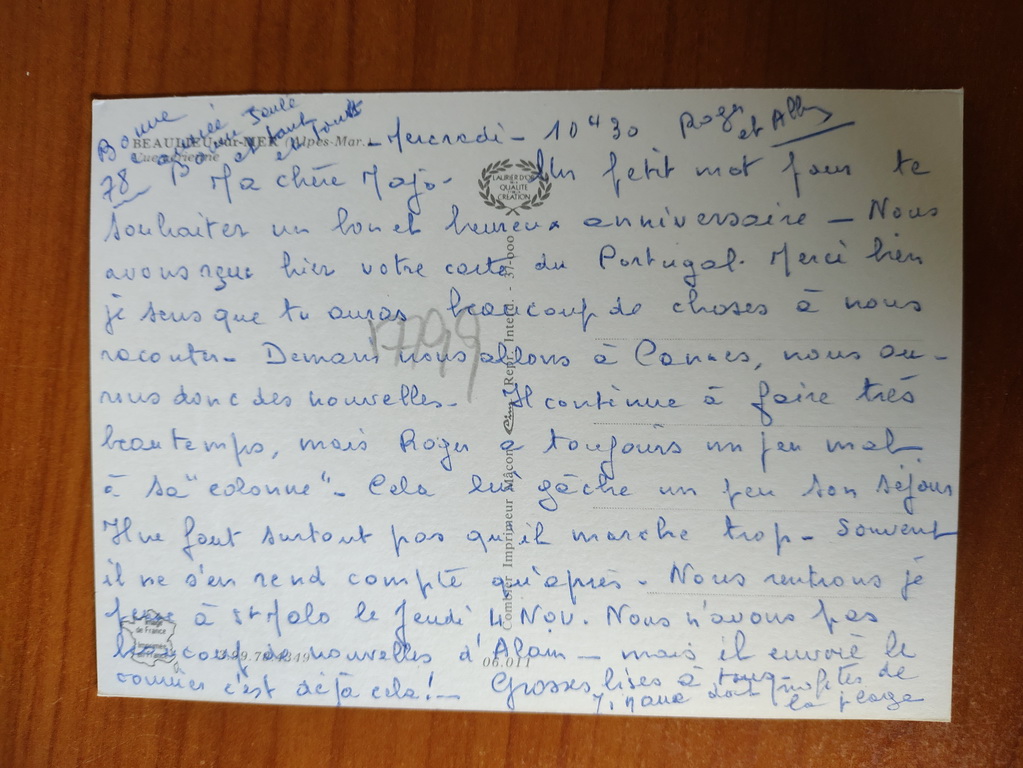 Bonne
année Pour Soulé
78
et tout
BEAULIEU-sur-MER (Alpes-Mar.
- Mercredi - 10H30
Roger
et
Ma chère Majo - Un petit mot pour te
LAURIER D'OR
DE LA
QUALITÉ
CRÉATION
souhaiter un bon et heureux anniversaire - Nous
avons reçue hier votre carte du Portugal. Merci bien
je sens que tu auras beaucoup de choses à nous
raconter - Demain nous allons à Cannes, nous au-
rons donc des nouvelles - Il continue à faire très
beau temps, mais Roger a toujours un peu mal
à sa "colonne" - Cela lui gâche un peu son séjour
Il ne faut surtout pas qu'il marche trop - Souvent
il ne s'en rend compte qu'après. Nous rentrons je
pense à St Malo le Jeudi 4 Nov. Nous n'avons pas
beaucoup de nouvelles d'Alain - mais il envoie le
courrier c'est déjà cela! - Grosses bises à tous -
profites de
la plage
Combier Imprimeur Mâcon
Cim
Repr. Interd. - 37-000
Image
de France
06.011